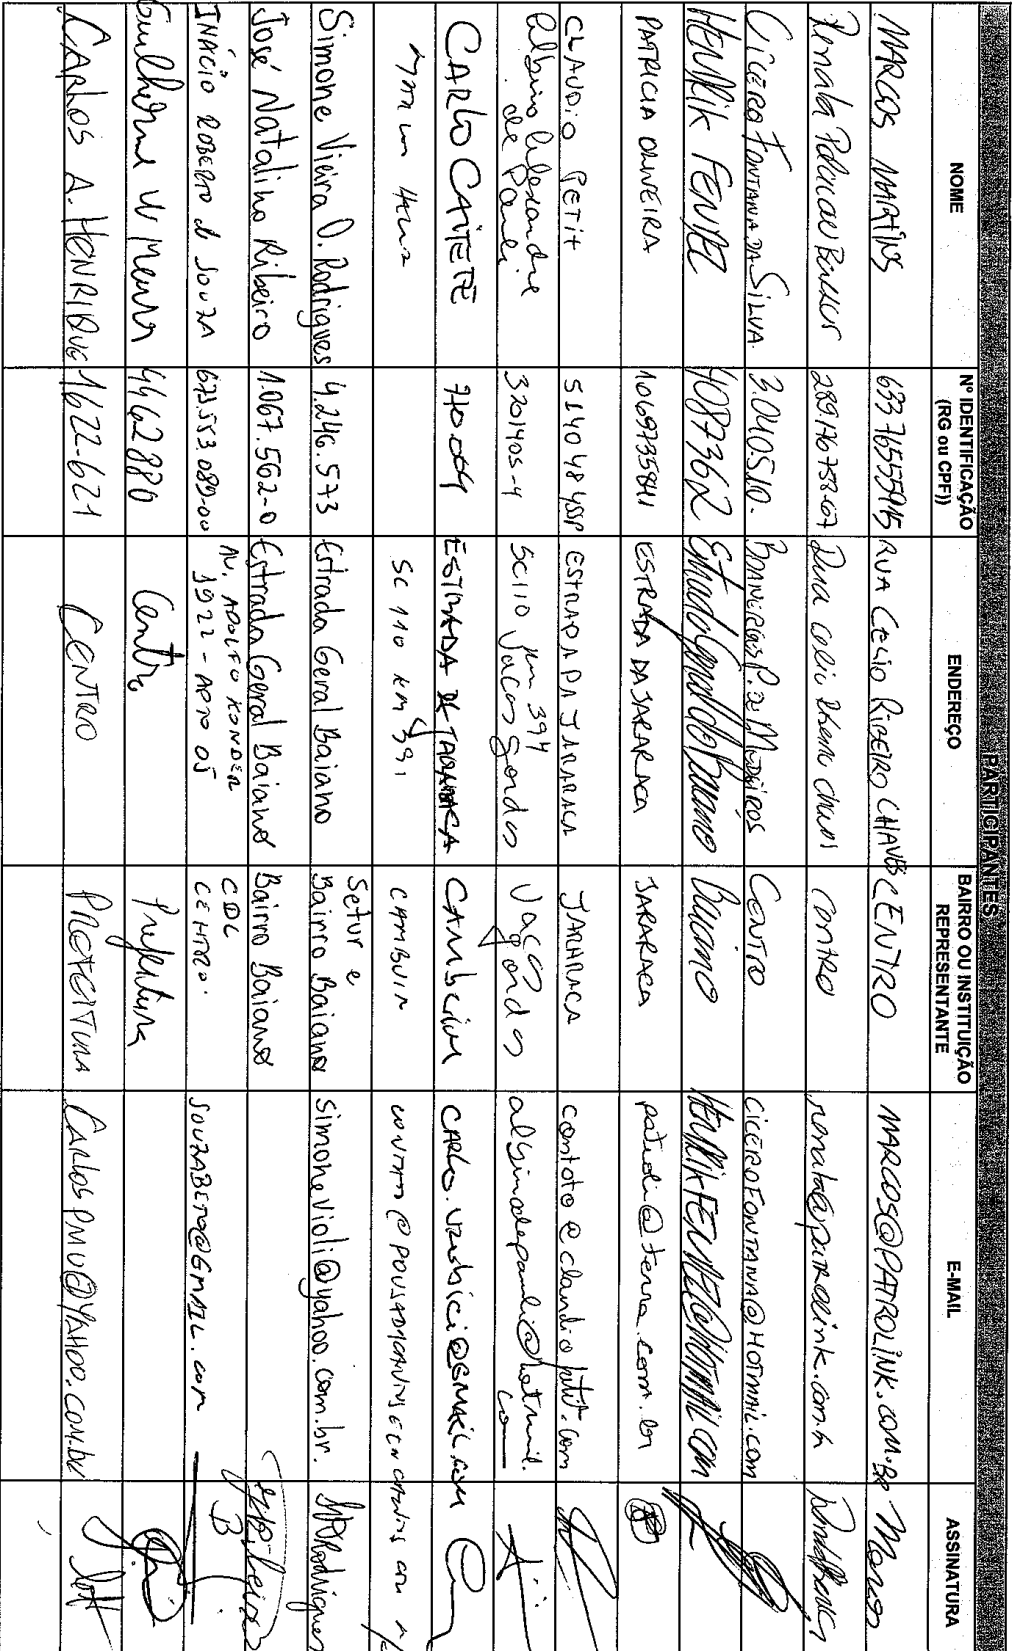 PARTICIPANTES
NOME Nº IDENTIFICAÇÃO (RG ou CPF)) ENDEREÇO BAIRRO OU INSTITUIÇÃO REPRESENTANTE E-MAIL ASSINATURA
MARCOS MARTINS 63376555915 RUA CELIO RIBEIRO CHAVES CENTRO MARCOS@PATROLINK.COM.BR Marcos
Renata 289176758-67 Rua Celio CENTRO
CICERO FONTANA DA SILVA. 3.040.510. P. DE MEDEIROS CENTRO CICEROFONTANA@HOTMAIL.COM
HENRIK FENDEL 4087362 Estrada Geral do Baiano Baiano HENRIKFENDEL@HOTMAIL.COM
PATRICIA OLIVEIRA 1069735841 ESTRADA DA JARARACA JARARACA @terra.com.br
CLAUDIO PETIT ESTRADA DA JARARACA JARARACA contato@claudiopetit.com
Albino Alexandre
de Pauli 3201405-4 SC110 km 394
Vacas Gordas Vacas
Gordas albinodepauli@hotmail.
com
CARLO CAITETE ESTRADA DE CARLO.URUBICI@GMAIL.COM
SC 110 KM 391 CAMBUIM
Simone Vieira O. Rodrigues 4.246.573 Estrada Geral Baiano Setur e
Bairro Baiano simonevioli@yahoo.com.br. Rodrigues
José Natalino Ribeiro 1.067.562-0 Estrada Geral Baiano Bairro Baiano Ribeiro
INÁCIO ROBERTO de SOUZA 673.553.089-00 AV. ADOLFO KONDER
1922 - APTO 05 CDL
CENTRO. SOUZABETO@GMAIL.com
Guilherme 4462880 Centro Prefeitura
CARLOS A. HENRIQUE 1622-621 CENTRO PREFEITURA CARLOSPMU@YAHOO.COM.BR